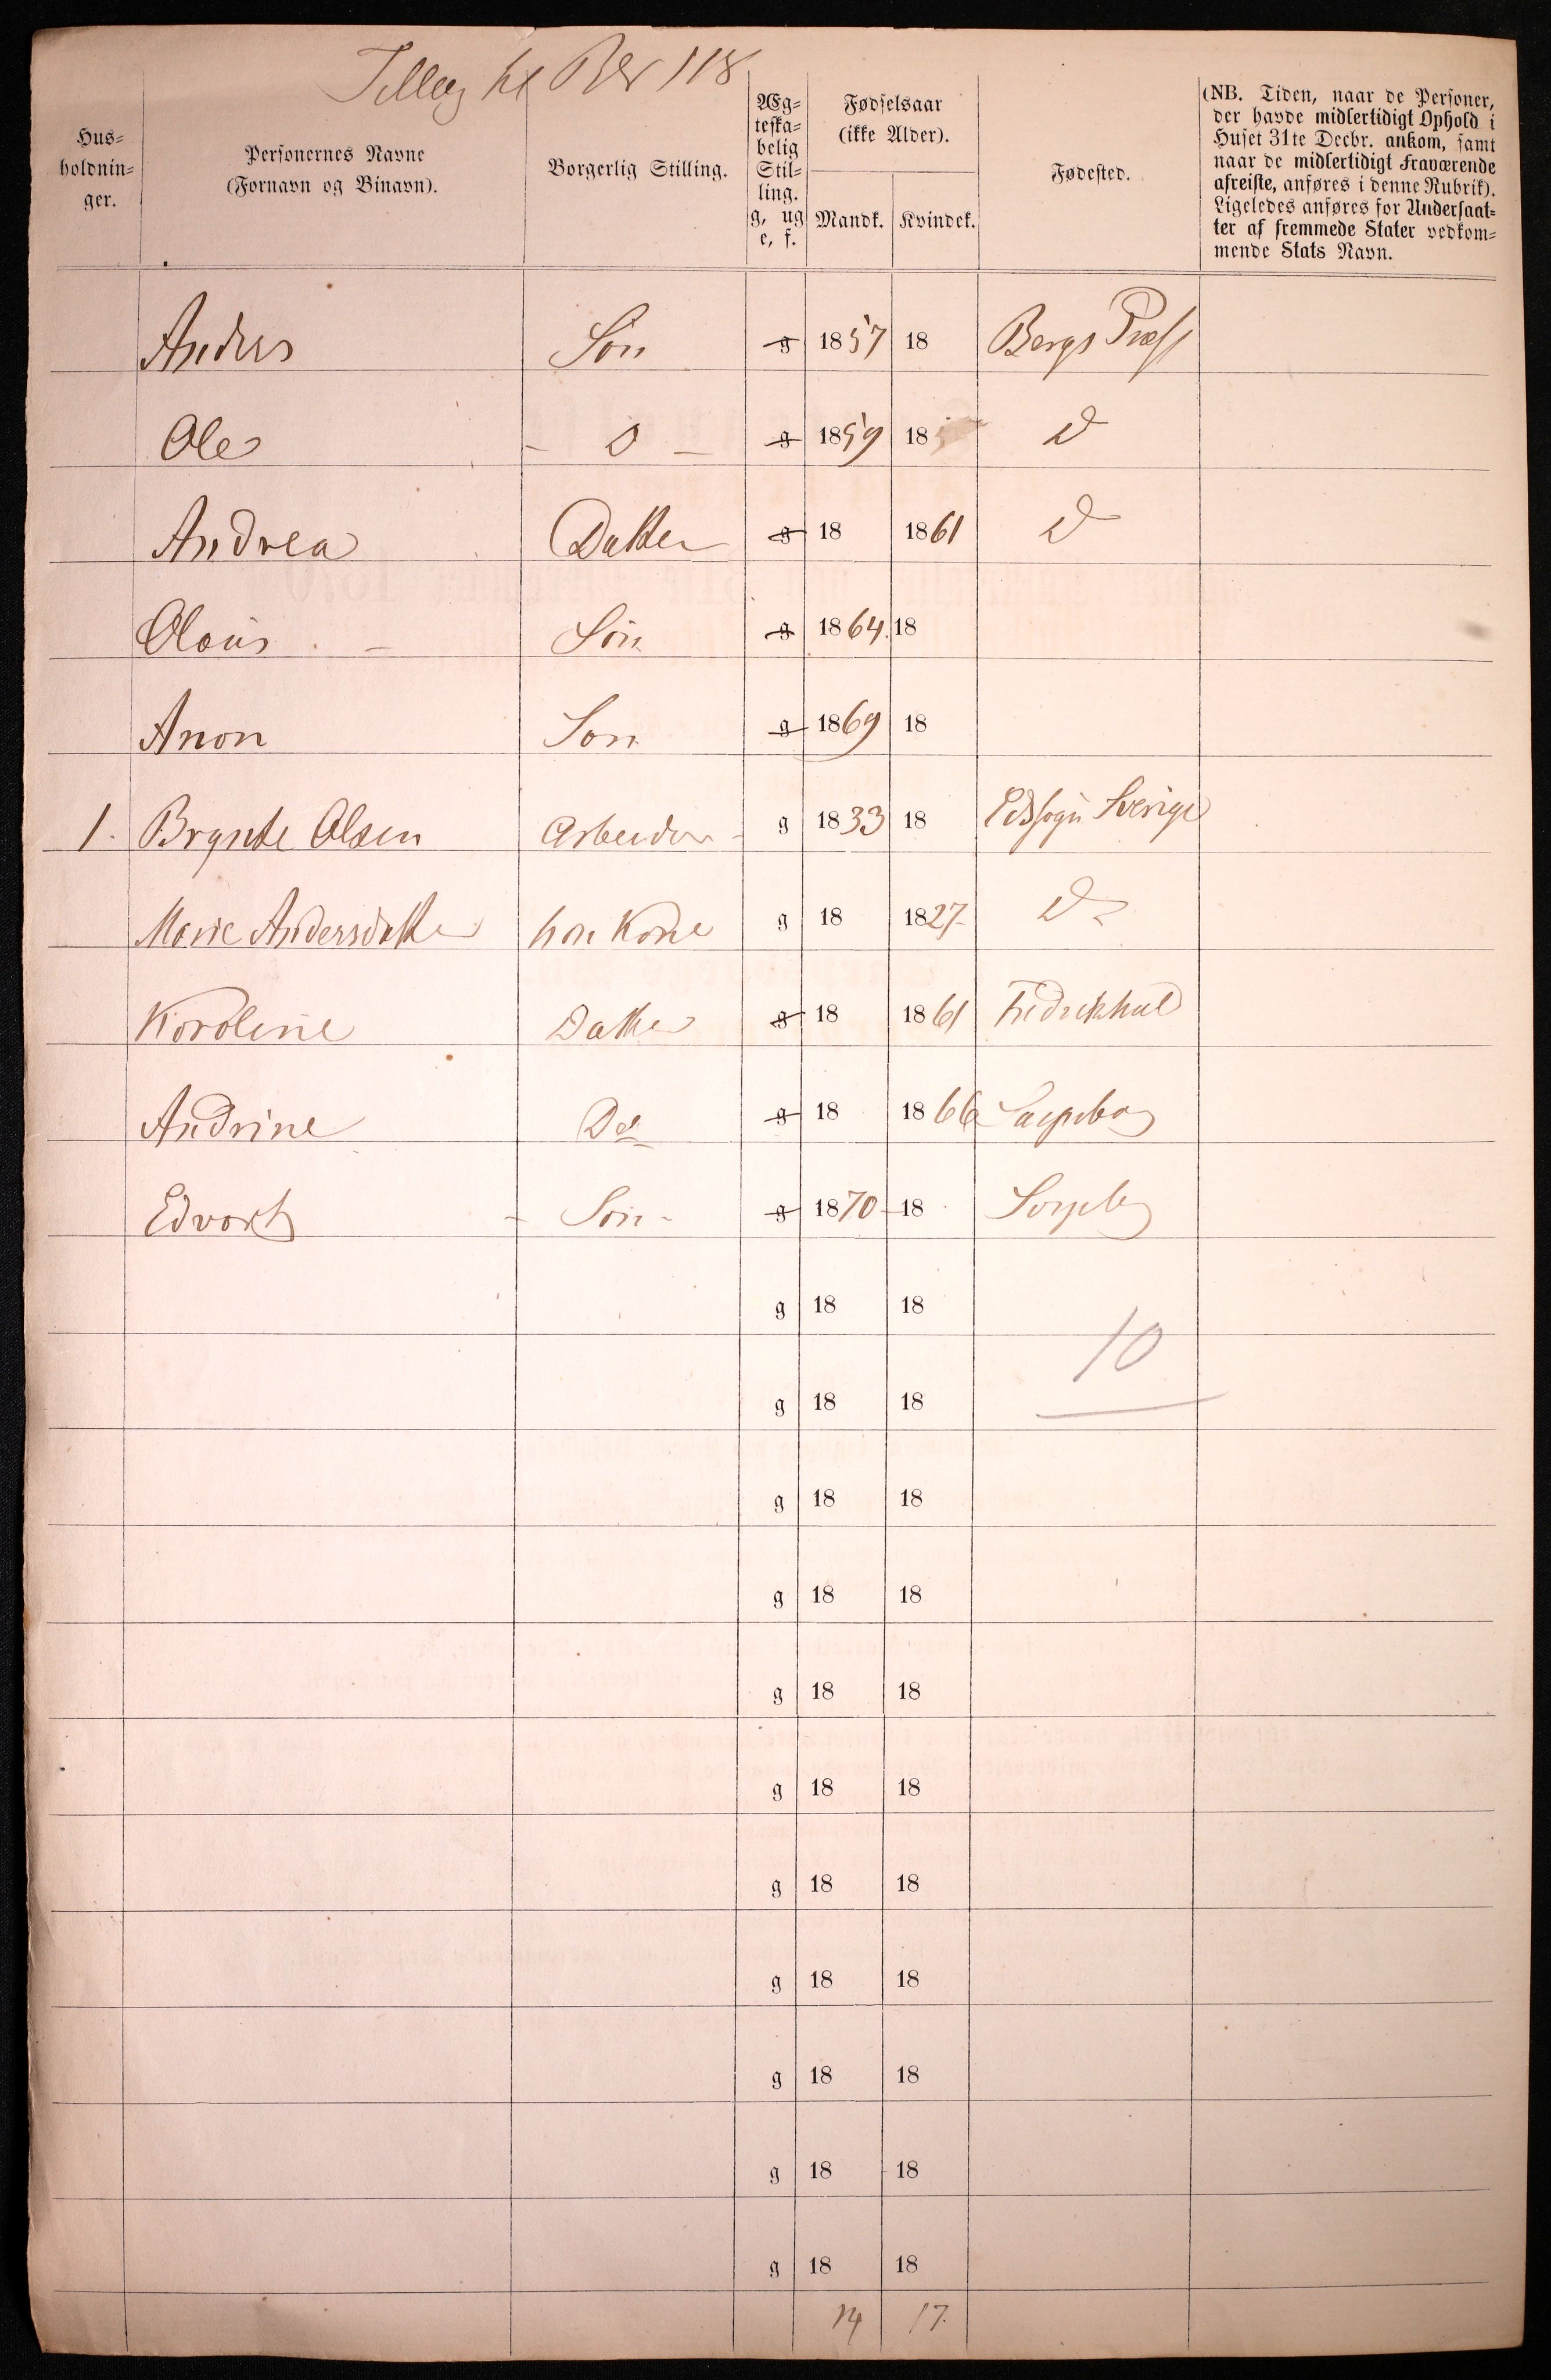 Tillæg til 118
Hus-
holdnin-
ger.
Personernes Navne
(Fornavn og Binavn).
Borgerlig Stilling.
Æg-
teska-
belig
Stil-
ling.
g, ug
e, f.
Fødselsaar
(ikke Alder).
Mandk. Kvindek.
Fødested.
(NB. Tiden, naar de Personer,
der havde midlertidigt Ophold i
Huset 31te Decbr. ankom, samt
naar de midlertidigt fraværende
afreiste, anføres i denne Rubrik).
Ligeledes anføres for Undersaat-
ter af fremmede Stater vedkom-
mende Stats Navn.
Anders Søn g 1857 18 Bergs Præst
Ole - D - g 1859 18 D
Andrea Datter g 18 1861 D
Olaus - Søn g 1864 18
Anon Søn g 1869 18
1. Brynte Olsen Arbeider g 1833 18 Edsogn Sverige
Marie Andersdatter hans Kone g 18 1827 D
Karoline Datter g 18 1861 Fredrikhald
Andrine Do g 18 1866 Sarpsborg
Edvart - Søn - g 1870 18 Sarpsbg
g 18 18
10
g 18 18
g 18 18
g 18 18
g 18 18
g 18 18
g 18 18
g 18 18
g 18 18
g 18 18
g 18 18
14 17